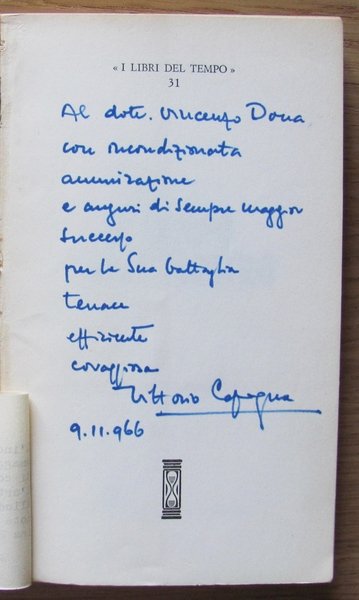 « I LIBRI DEL TEMPO »
31
Al dott. Vincenzo Dona
con incondizionata
ammirazione
e auguri di sempre maggior
successo
per la Sua battaglia
tenace
efficiente
coraggiosa
Vittorio
9.11.966